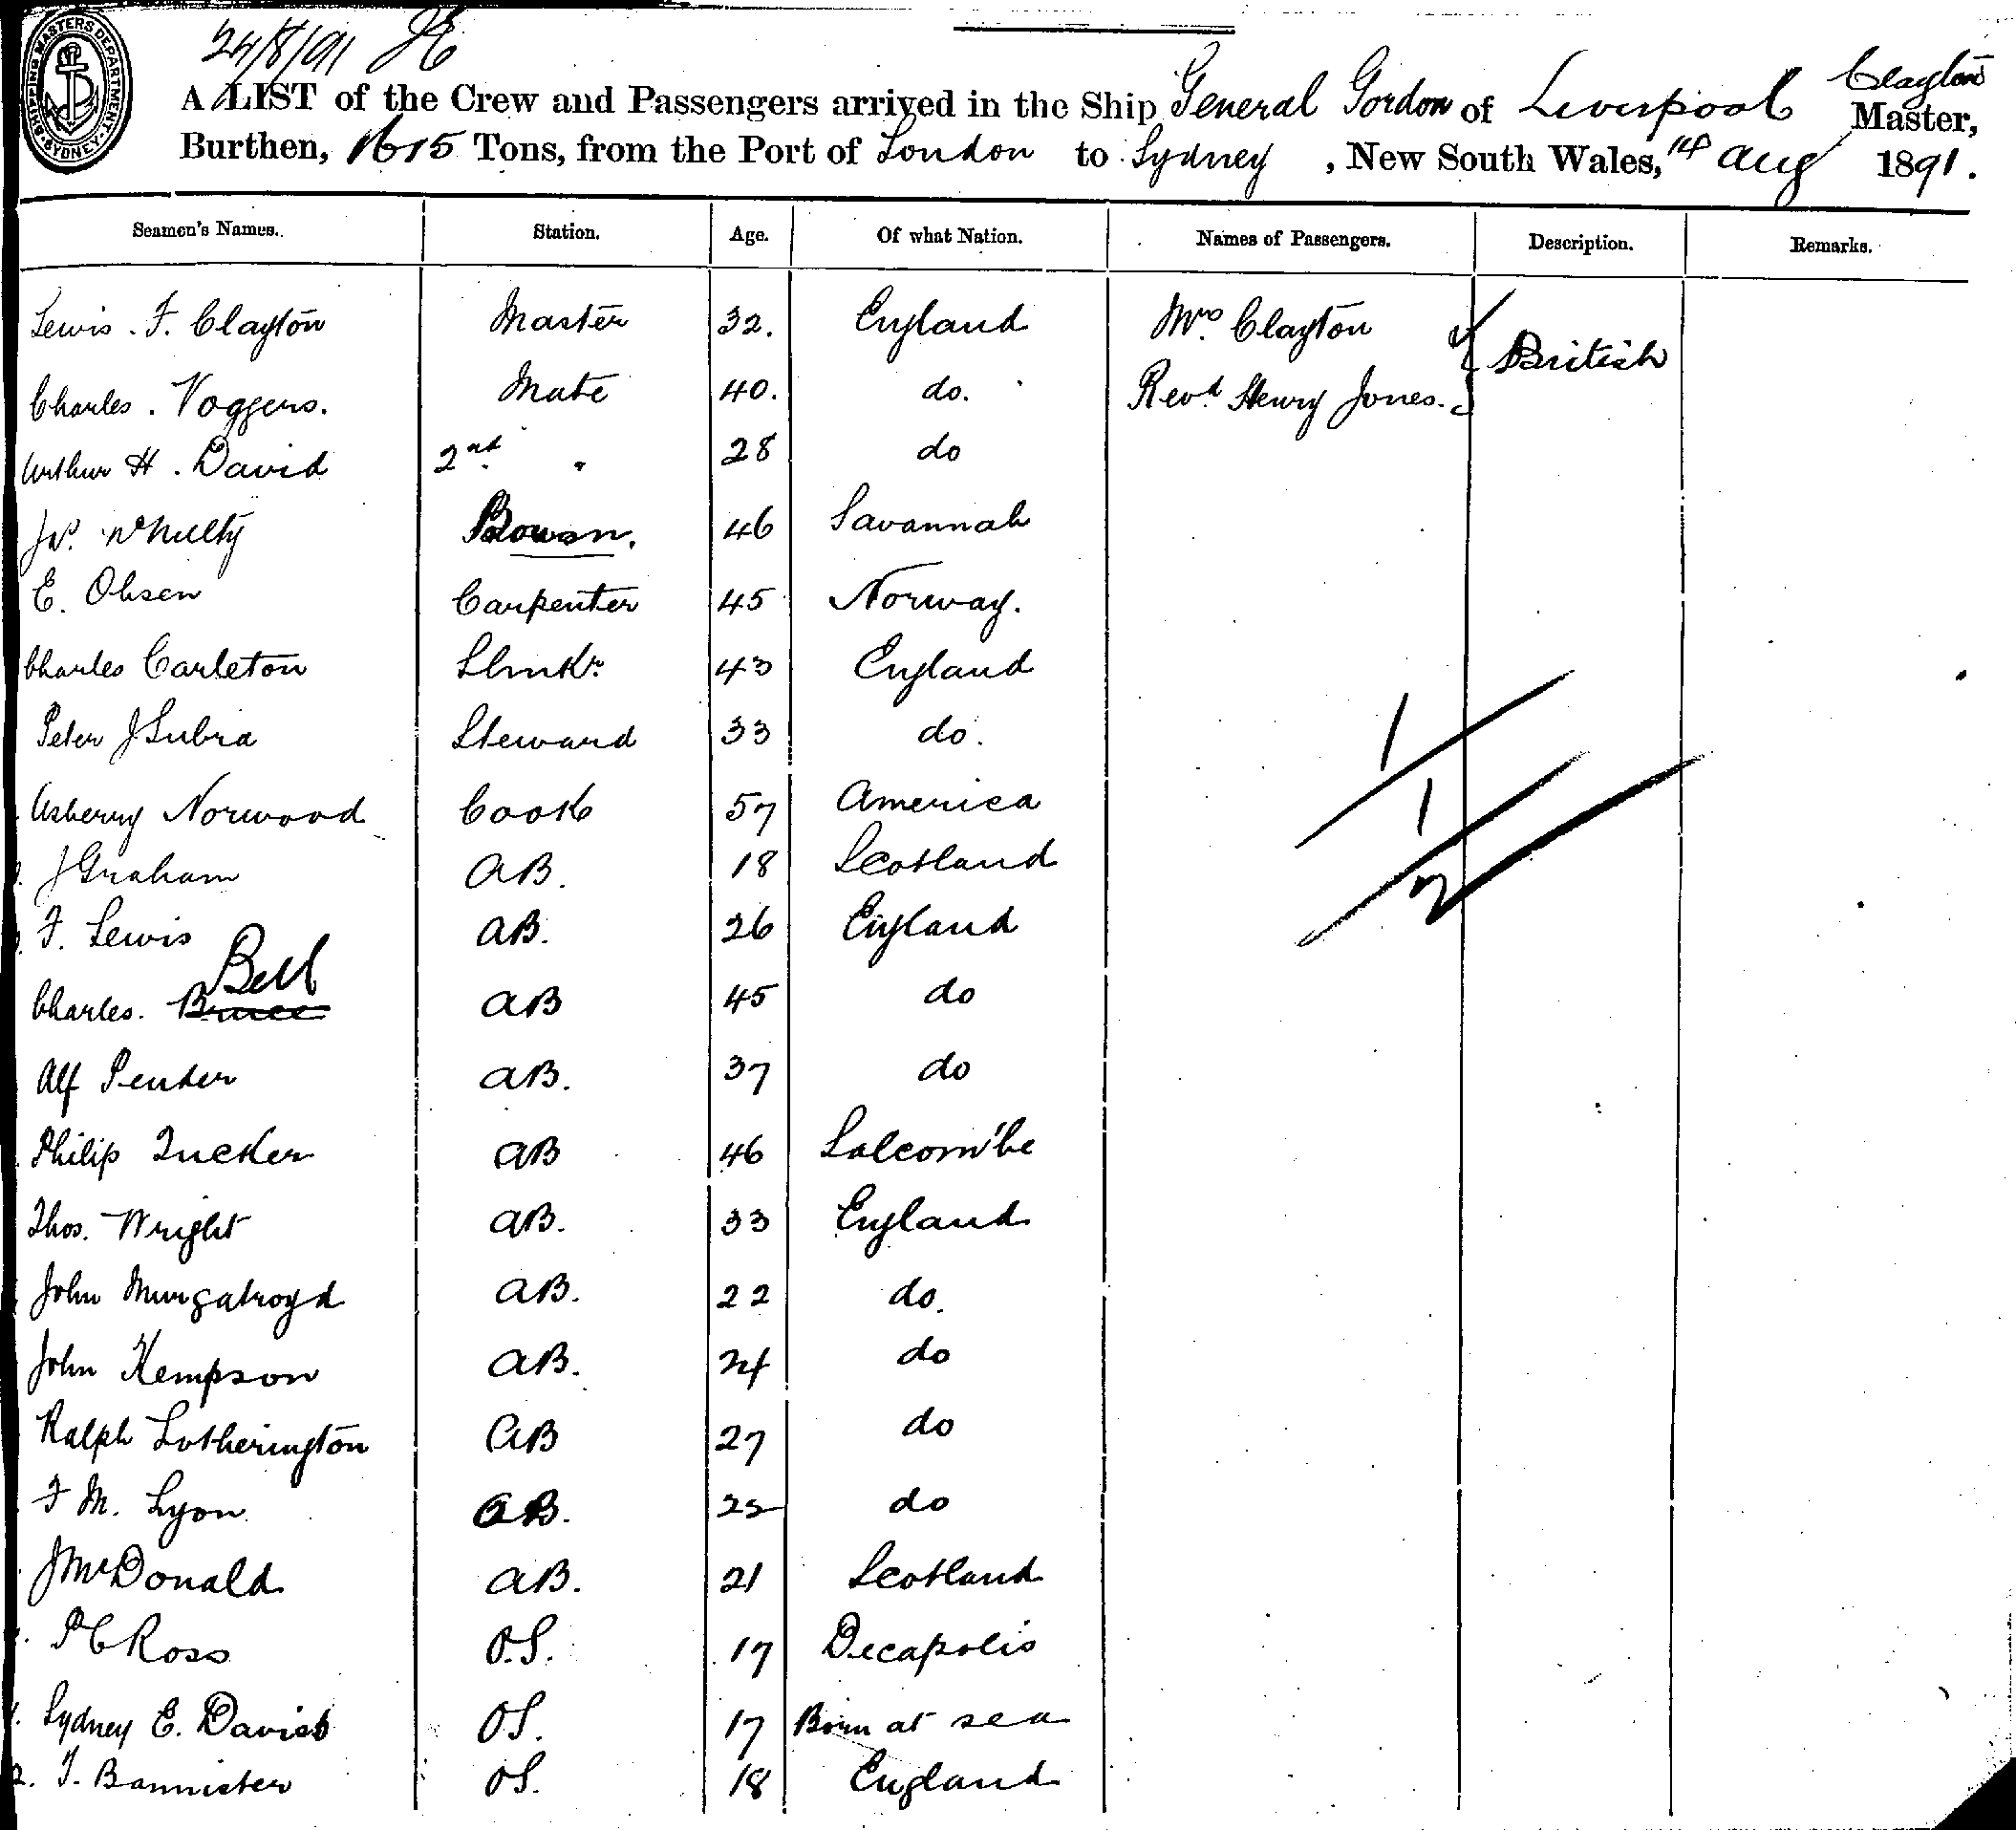 SHIPPING MASTERS DEPARTMENT · SYDNEY ·
24/8/91
A LIST of the Crew and Passengers arrived in the Ship General Gordon of Liverpool Clayton Master,
Burthen, 1615 Tons, from the Port of London to Sydney , New South Wales, 14 Aug 1891.
Seamen's Names. Station. Age. Of what Nation. Names of Passengers. Description. Remarks.
Lewis . F. Clayton Master 32. England Mrs Clayton British
Charles . Voggers. Mate 40. do. Revd. Henry Jones.
Arthur H . David 2nd " 28 do
McNulty Bowsn. 46 Savannah
E. Olsen Carpenter 45 Norway.
Charles Carleton Slmkr. 43 England
Peter J Subra Steward 33 do. 1
Asberry Norwood Cook 57 America 1
J Graham AB. 18 Scotland 2
F. Lewis AB. 26 England
Bell
Charles. Bruce AB 45 do
Alf Pender AB. 37 do
Philip Tucker AB 46 Salcombe
Thos. Wright AB. 33 England
John Murgatroyd AB. 22 do.
John Kempson AB. 24 do
Ralph Lotherington AB 27 do
F M. Lyon AB. 25 do
J McDonald AB. 21 Scotland
P C Ross O.S. 17 Decapolis
Sydney E. David OS. 17 Born at sea
2. F. Bannister OS. 18 England